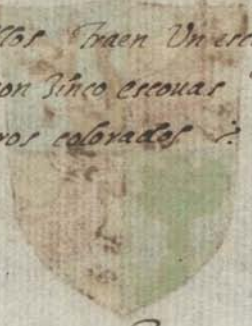 llos Traen Un esc
on Zinco escouas
ros colorados